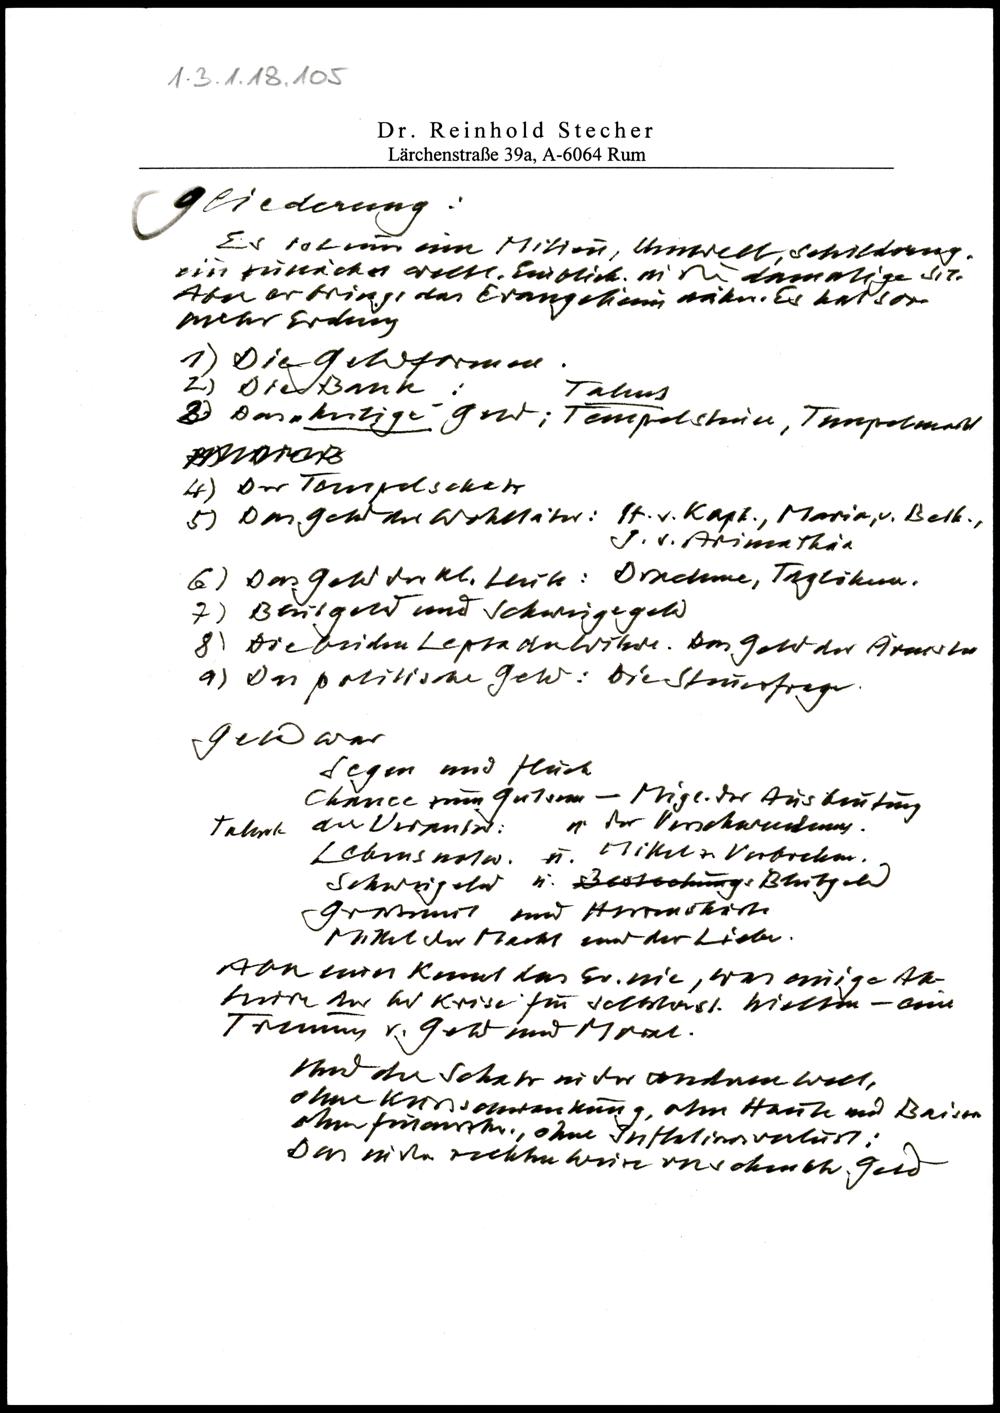 1.3.1.18.105
Dr. Reinhold Stecher
Lärchenstraße 39a, A-6064 Rum
Gliederung:
Es ist nur eine Milieu, Umwelt, Schilderung.
ein zunächst weltl. Einblick in die damalige Sit.
Aber er bringt das Evangelium näher. Es hat so
mehr Erdung
1) Die Geldformen.
2) Die Bank: Talent
3) Das "heilige" Geld; Tempelsteuer, Tempelmarkt
4) Der Tempelschatz
5) Das Geld der Wohltäter: H. v. Kaph., Maria, v. Beth.,
J. v. Arimathäa
6) Das Geld der kl. Leute: Drachme, Taglöhner.
7) Blutgeld und Schweigegeld
8) Die beiden Lepta der Witwe. Das Geld der Ärmsten
9) Das politische Geld: Die Steuerfrage.
Geld war
Segen und Fluch
Chance zum Guten — Mögl. der Ausbeutung
Talente der Verantw: u der Verschwendung.
Lebensnotw. u. Mittel z. Verbrechen.
Schweigeld u. Bestechungs Blutgeld
Grossmut und Herzenshärte
Mittel der Macht und der Liebe.
Aber eines kennt das Ev. nie, was einige Ak-
teure der Krise für selbstverst. hielten — eine
Trennung v. Geld und Moral.
Und der Schatz in der anderen Welt,
ohne Kursschwankung, ohne Hausse und Baisse
ohne Finanzkr., ohne Inflationsverlust:
Das in der rechten Weise verschenkte Geld